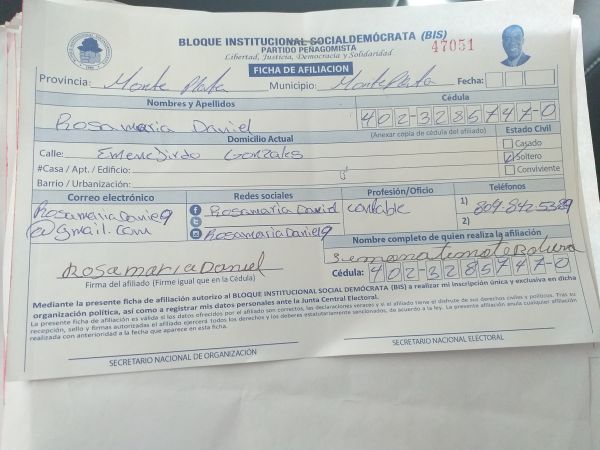 BLOQUE INSTITUCIONAL SOCIALDEMÓCRATA (BIS)
PARTIDO PEÑAGOMISTA
Libertad, Justicia, Democracia y Solidaridad
47051
FICHA DE AFILIACION
Provincia: Monte Plata Municipio: Monte Plata Fecha:
Nombres y Apellidos Cédula
Rosamaria Daniel 402-3285747-0
Domicilio Actual (Anexar copia de cédula del afiliado) Estado Civil
Calle: Gonzales Casado
#Casa / Apt. / Edificio: Soltero
Barrio / Urbanización: Conviviente
Correo electrónico Redes sociales Profesión/Oficio Teléfonos
Rosamaria Daniel9 Rosamaria Daniel contable 1) 809-842-5389
@gmail.com 2)
Rosamaria Daniel9 Nombre completo de quien realiza la afiliación
Rosamaria Daniel
Firma del afiliado (Firme igual que en la Cédula) Cédula: 402-3285747-0
Mediante la presente ficha de afiliación autorizo al BLOQUE INSTITUCIONAL SOCIAL DEMÓCRATA (BIS) a realizar mi inscripción única y exclusiva en dicha
organización política, así como a registrar mis datos personales ante la Junta Central Electoral.
La presente ficha de afiliación es válida si los datos ofrecidos por el afiliado son correctos, las declaraciones veraces y si el afiliado tiene el disfrute de sus derechos civiles y políticos. Tras su
recepción, sello y firmas autorizadas el afiliado ejercerá todos los derechos y los deberes estatutariamente sancionados, de acuerdo a la ley. La presente afiliación anula cualquier afiliación
realizada con anterioridad a la fecha que aparece en esta ficha.
SECRETARIO NACIONAL DE ORGANIZACIÓN SECRETARIO NACIONAL ELECTORAL